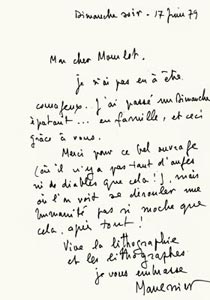 Dimanche soir - 17 Juin 79
Mon cher Mourlot.
Je n'ai pas eu à être
courageux. J'ai passé un Dimanche
épatant... en famille, et ceci
grâce à vous.
Merci pour ce bel ouvrage
(où il n'y a pas tant d'anges
ni de diables que cela!), mais
où l'on voit se dérouler une
humanité pas si moche que
cela, après tout!
Vive la lithographie
et les lithographes
je vous embrasse
Manessier